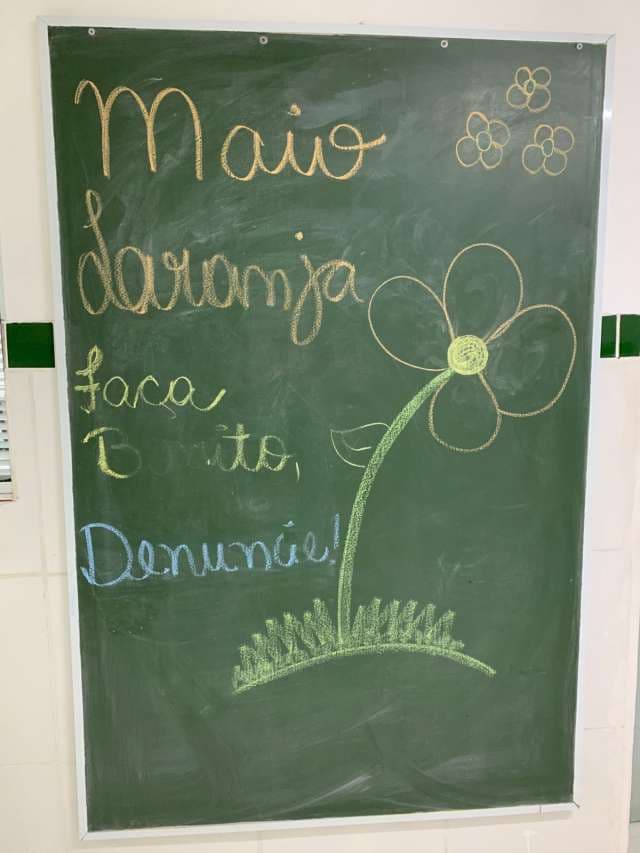 Maio
Laranja
Faça
Bonito,
Denuncie!